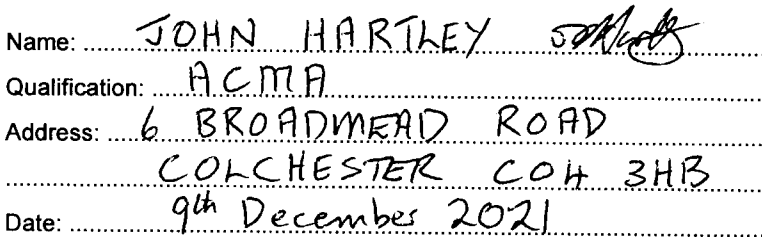 Name: JOHN HARTLEY
Qualification: ACMA
Address: 6 BROADMEAD ROAD
COLCHESTER CO4 3HB
Date: 9th December 2021